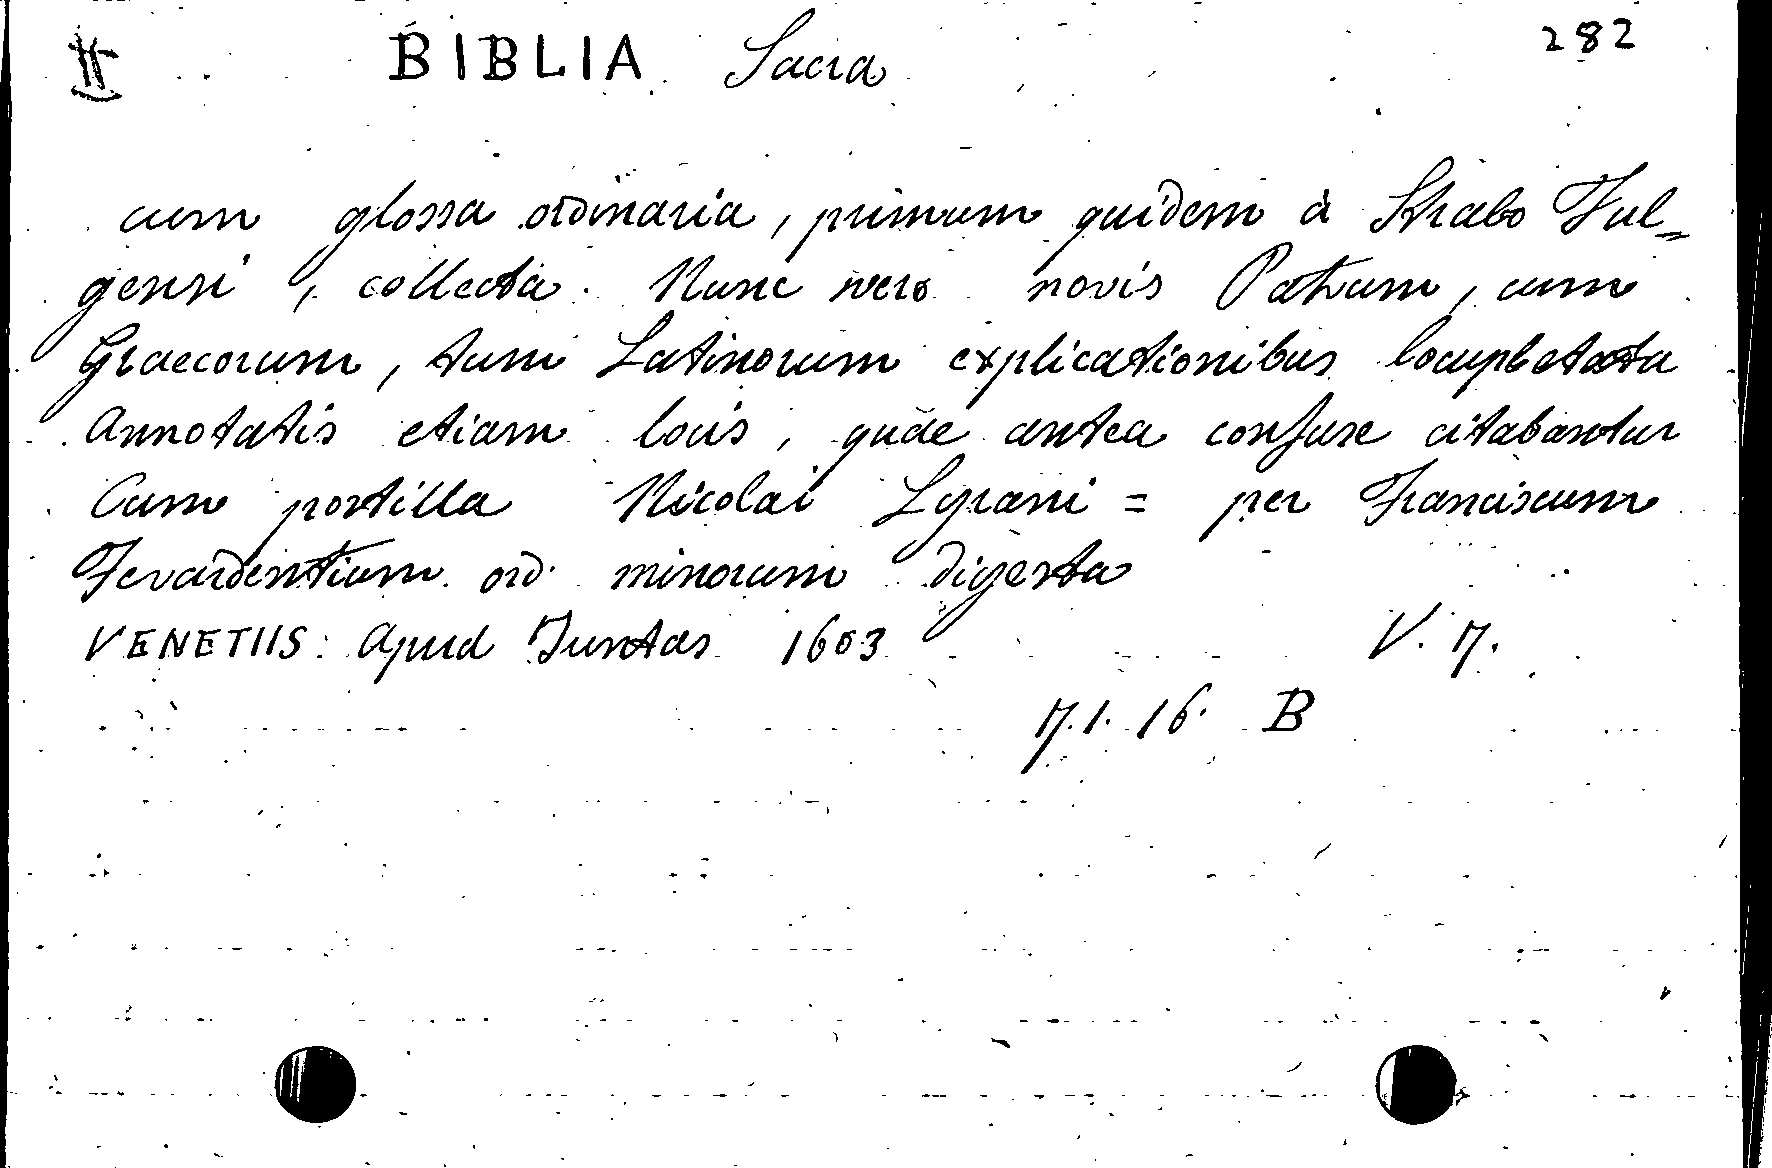 BIBLIA Sacra 282
cum glossa ordinaria, primum quidem à Strabo Ful=
gensi, collecta. Nunc vero novis Patrum, cum
Graecorum, tum Latinorum explicationibus locupletata
Annotatis etiam locis, quae antea confuse citabantur
Cum postilla Nicolai Lyrani = per Franciscum
Fevardentium ord. minorum digesta
VENETIIS: Apud Juntas 1603 V. 7.
7.1.16. B